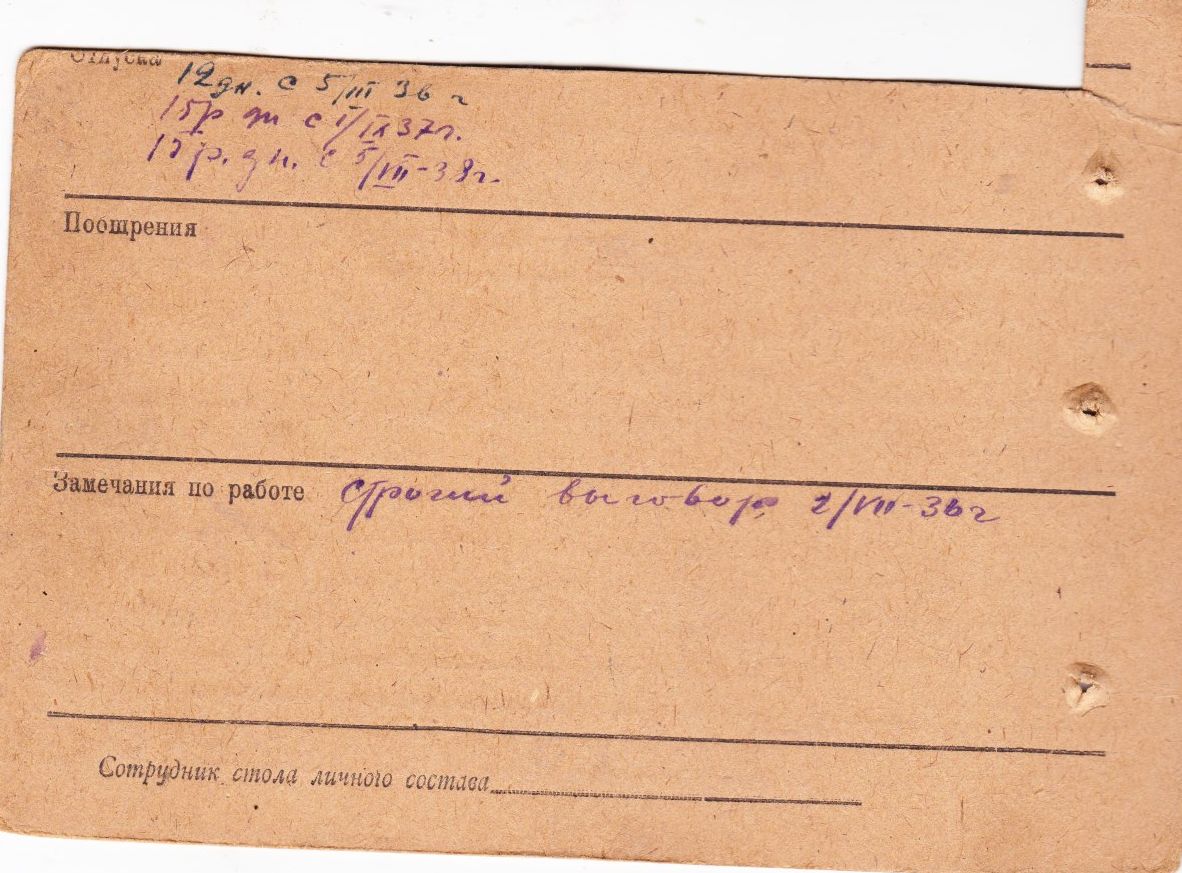 Отпуска
12 дн. с 5/III 36 г
15 р дн с 1/IX 37 г.
15 р. дн. с 5/VII-38 г.
Поощрения
Замечания по работе строгий выговор 2/VII-36 г
Сотрудник стола личного состава